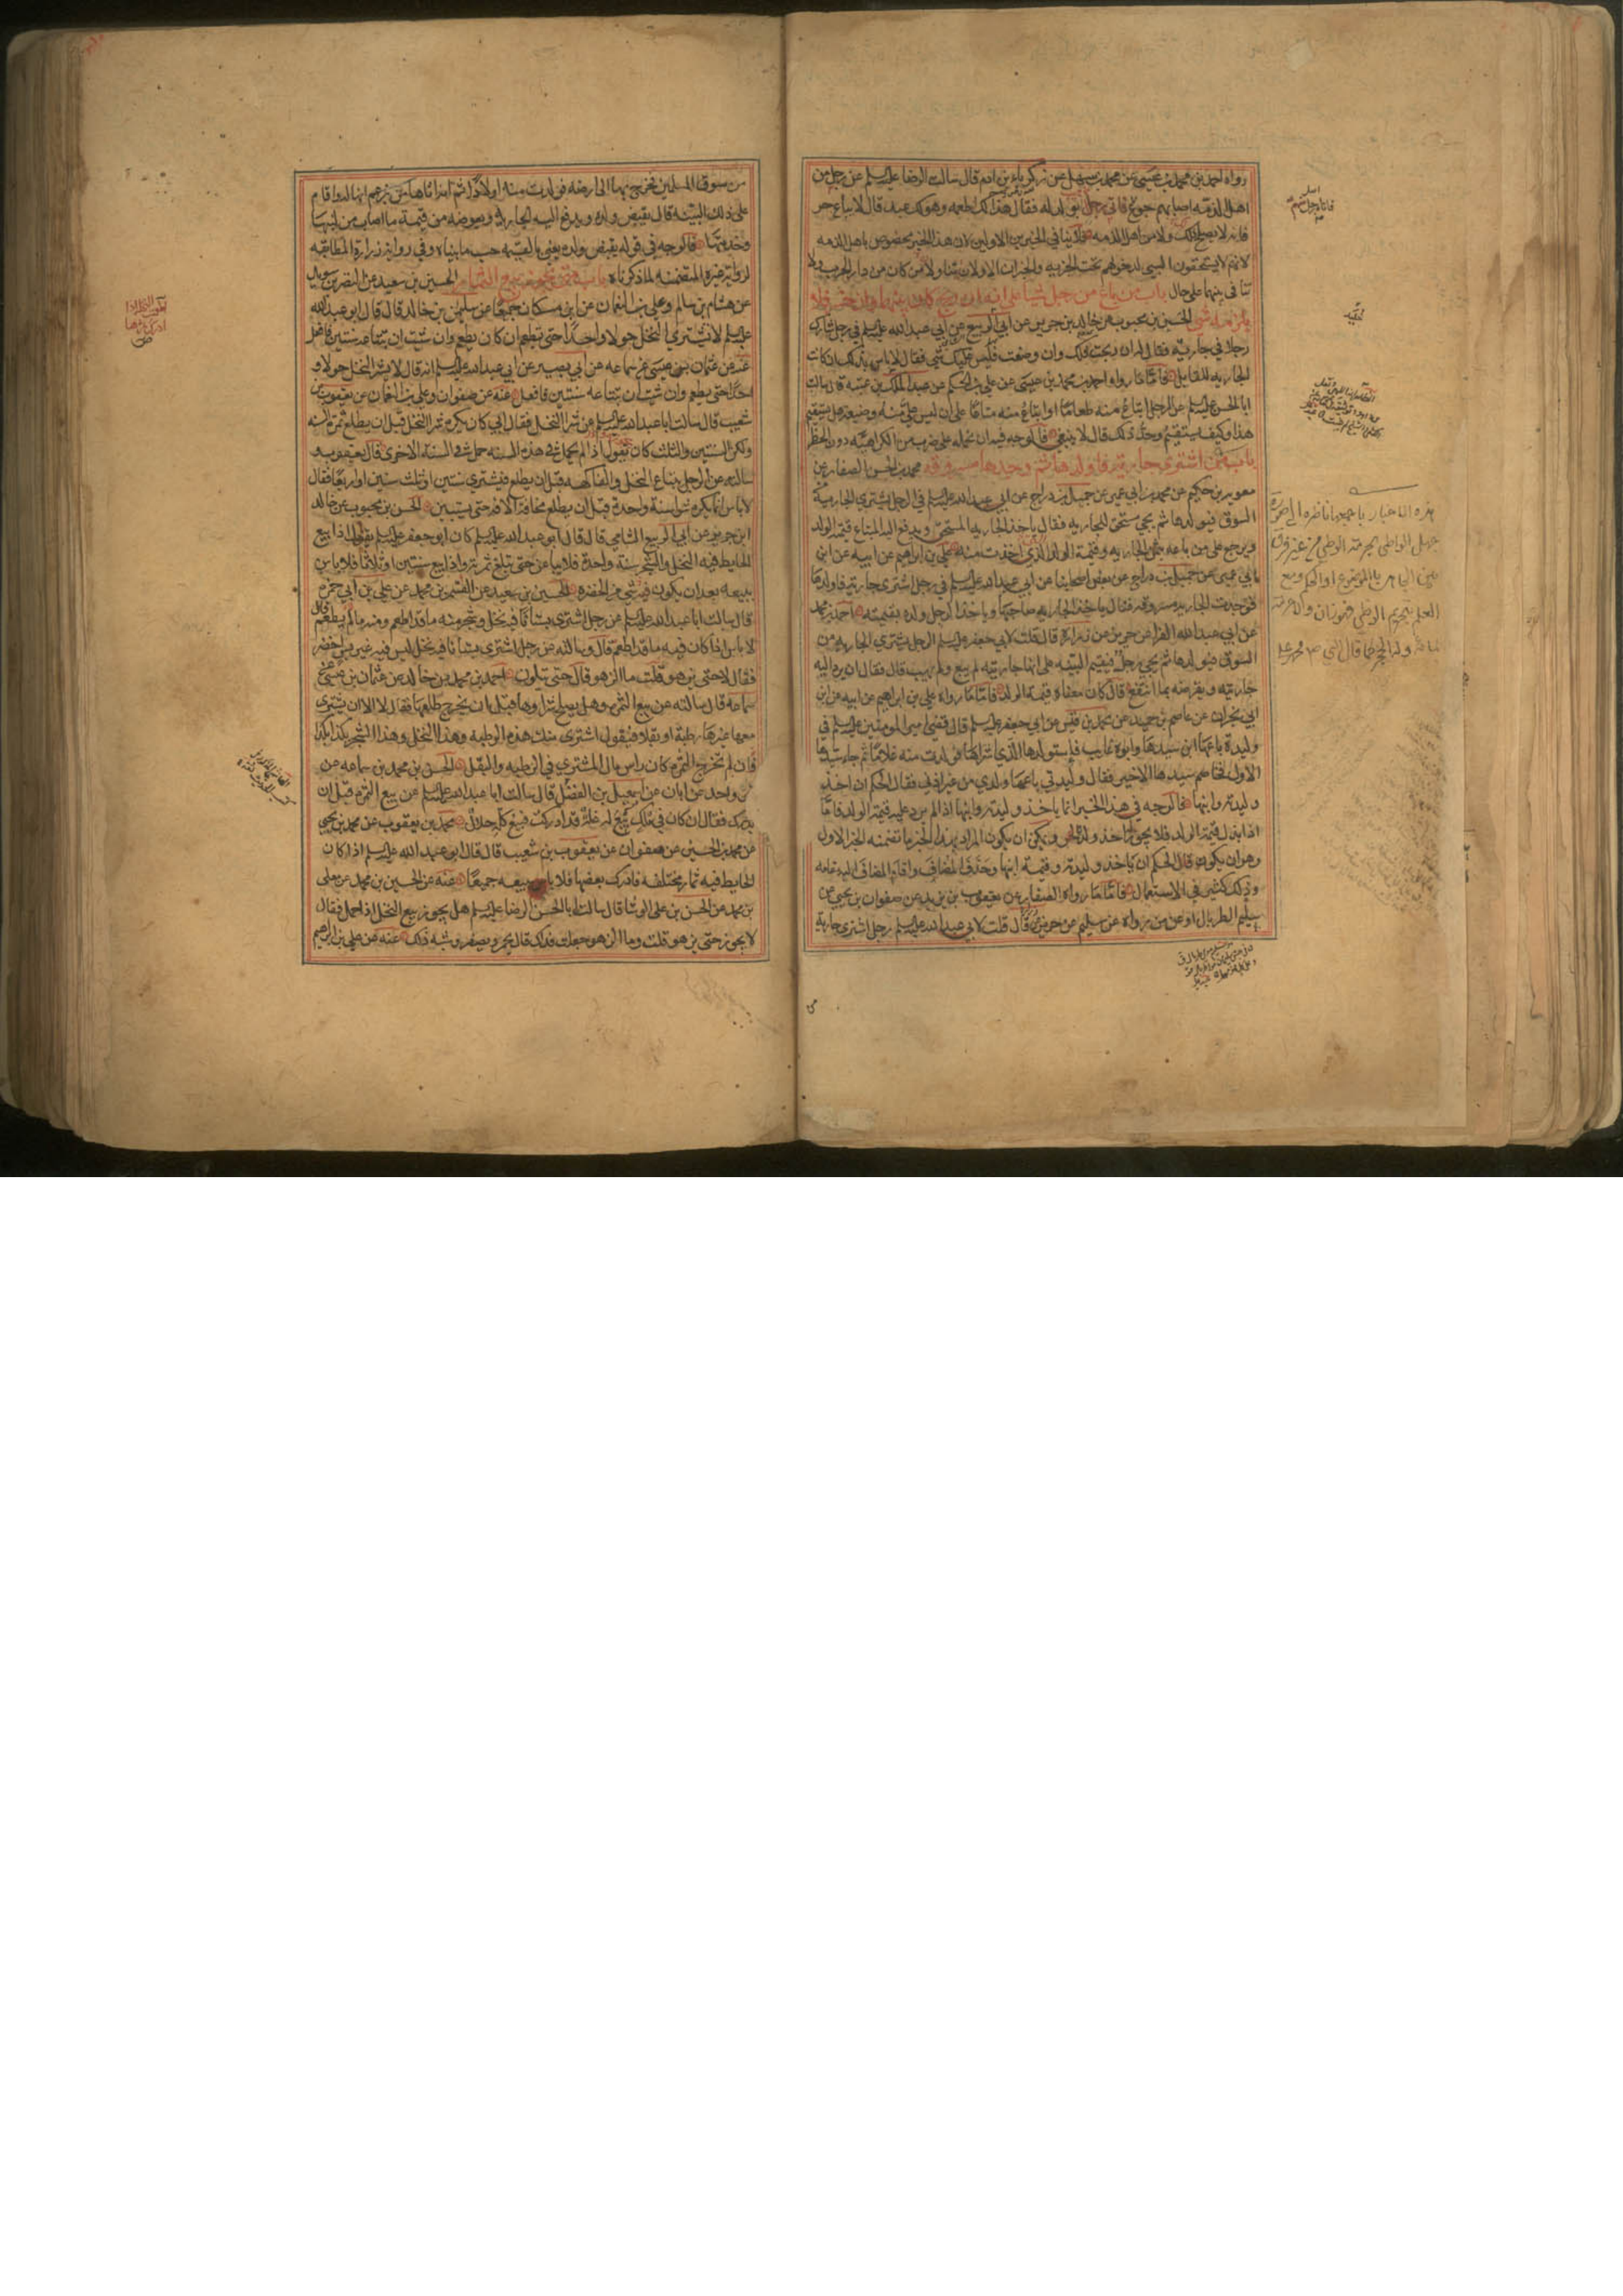 رواه احمد بن محمد بن عيسى عن محمد بن سهل عن زكرياء بن ادم قال سالت الرضا عليه السلم عن رجل من
اهل الذمه اصابهم جوع فاتى رجل بولد له فقال هذا لك اطعمه وهو لك عبد قال لا يباع حر
فانه لا يصلح لك ولا من اهل الذمه فلا ينافي الخبرين الاولين لان هذا الخبر مخصوص باهل الذمه
لانهم لا يستحقون السبي لدخولهم تحت الجزيه والخبران الاولان تناولا من كان من دار الحرب ولا
تنافى بينهما على حال باب من باع من رجل شيئا على ان كان بينهما وان خسر فلا
يلزمه شي الحسن بن محبوب عن خالد بن جرير عن ابي الربيع عن ابي عبد الله عليه السلم في رجل شارك
رجلا في جاريه فقال له ان ربحت فلك وان وضعت فليس عليك شي فقال لا باس بذلك ان كانت
الجاريه للقايل فاما ما رواه احمد بن محمد بن عيسى عن علي بن الحكم عن عبد الملك بن عتبه قال سالت
ابا الحسن عليه السلم عن الرجل ابتاع منه طعاما او ابتاع منه متاعا على ان ليس علي منه وضيعه هل يستقيم
هذا وكيف يستقيم وحد ذلك قال لا ينبغي فالوجه فيه ان نحمله على ضرب من الكراهيه دون الحظر
باب من اشترى جاريه فاولدها ثم وجدها مسروقه محمد بن الحسن الصفار عن
معويه بن حكيم عن محمد بن ابي عمير عن جميل بن دراج عن ابي عبد الله عليه السلم في الرجل يشتري الجاريه من
السوق فيولدها ثم يجي مستحق الجاريه فقال ياخذ الجاريه المستحق ويدفع اليه المبتاع قيمه الولد
ويرجع على من باعه بثمن الجاريه وقيمه الولد الذي اخذت منه علي بن ابراهيم عن ابيه عن ابن
ابي عمير عن جميل بن دراج عن بعض اصحابنا عن ابي عبد الله عليه السلم في رجل اشترى جاريه فاولدها
فوجدت الجاريه مسروقه فقال ياخذ الجاريه صاحبها وياخذ الرجل ولده بقيمته احمد بن محمد
عن ابي عبد الله الفرا عن حريز عن زراره قال قلت لابي جعفر عليه السلم الرجل يشتري الجاريه من
السوق فيولدها ثم يجي رجل فيقيم البينه على انها جاريته لم يبع ولم يهب قال فقال ان يرد اليه
جاريته ويعوضه بما انتفع قال كان معناه قيمه الولد فاما ما رواه علي بن ابراهيم عن ابيه عن ابن
ابي نجران عن عاصم بن حميد عن محمد بن قيس عن ابي جعفر عليه السلم قال قضى امير المومنين عليه السلم في
وليده باعها ابن سيدها وابوه غايب فاستولدها الذي اشتراها فولدت منه غلاما ثم جاء سيدها
الاول فخاصم سيدها الاخير فقال وليدتي باعها ولدي من غير اذني فقال الحكم ان ياخذ
وليدته وابنها فالوجه في هذا الخبر انما ياخذ وليدته وابنها اذا لم يرد عليه قيمه الولد فاما
اذا بذل قيمه الولد فلا يجوز اخذ ولد الحر ويمكن ان يكون المراد بهذا الخبر ما تضمنه الخبر الاول
وهو ان يكون قال الحكم ان ياخذ وليدته وقيمه ابنها وحذف المضاف واقام المضاف اليه مقامه
وذلك كثير في الاستعمال فاما ما رواه الصفار عن يعقوب بن يزيد عن صفوان بن يحيى عن
سليم الطربال او عمن رواه عن سليم عن حريز قال قلت لابي عبد الله عليه السلم رجل اشترى جارية
هذه الاخبار باجمعها ناظره الى صورة
جهل الواطي بحرمه الوطي من غير فرق
بين الجاهل بالموضوع او الحكم ومع
العلم بتحريم الوطي فهو زان
من سوق المسلمين فخرج بها الى ارضه فولدت منه اولادا ثم اتاها من يزعم انها له واقام
على ذلك البينه قال يقبض ولده ويدفع اليه الجاريه ويعوضه من قيمه ما اصاب من لبنها
وخدمتها فالوجه في قوله يقبض ولده يعني بالقيمه حسب ما بيناه وفي روايه زراره المطابقه
لروايه غيره المتضمنه لما ذكرناه باب متى يجوز بيع الثمار الحسين بن سعيد عن النضر بن سويد
عن هشام بن سالم وعلي بن النعمان عن ابن مسكان جميعا عن سليمن بن خالد قال قال ابو عبد الله
عليه السلم لا تشتري النخل حولا واحدا حتى تطعم ان كان يطعم وان شيت ان تبتاعه سنتين فافعل
عنه عن عثمان بن عيسى عن سماعه عن ابي بصير عن ابي عبد الله عليه السلم انه قال لا تشتر النخل حولا و
احدا حتى يطعم وان شيت ان تبتاعه سنتين فافعل عنه عن صفوان وعلي بن النعمان عن يعقوب بن
شعيب قال سالت ابا عبد الله عليه السلم عن شرا النخل فقال ابي كان يكره شرا النخل قبل ان يطلع ثمره السنه
ولكن السنتين والثلث كان يقول اذا لم يحمل في هذه السنه حمل في السنه الاخرى قال يعقوب و
سالته عن الرجل يبتاع النخل والفاكهه قبل ان يطلع فيشتري سنتين او ثلث سنين او اربعا فقال
لا باس انما يكره شرا سنة واحدة قبل ان يطلع مخافة الافه حتى يستبين الحسن بن محبوب عن خالد
ابن جرير عن ابي الربيع الشامي قال قال ابو عبد الله عليه السلم كان ابو جعفر عليه السلم يقول اذا بيع
الحايط فيه النخل والشجر سنة واحدة فلا يباعن حتى تبلغ ثمرته واذا بيع سنتين او ثلاثا فلا باس
ببيعه بعد ان يكون فيه شي من الخضره الحسين بن سعيد عن القسم بن محمد عن علي بن ابي حمزه
قال سالت ابا عبد الله عليه السلم عن رجل اشترى بستانا فيه نخل وشجر منه ما قد اطعم ومنه ما لم يطعم قال
لا باس اذا كان فيه ما قد اطعم قال وسالته عن رجل اشترى بستانا فيه نخل ليس فيه غير بسر اخضر
فقال لا حتى يزهو قلت ما الزهو قال حتى يتلون احمد بن محمد بن خالد عن عثمان بن عيسى عن
سماعه قال سالته عن بيع الثمره هل يصلح شراوها قبل ان يخرج طلعها فقال لا الا ان يشتري
معها غيرها رطبة او بقلا فيقول اشترى منك هذه الرطبه وهذا النخل وهذا الشجر بكذا وكذا
فان لم تخرج الثمره كان راس مال المشتري في الرطبه والبقل الحسن بن محمد بن سماعه عن
غير واحد عن ابان عن اسمعيل بن الفضل قال سالت ابا عبد الله عليه السلم عن بيع الثمره قبل ان
يدرك فقال ان كان في تلك بيع له غلة قد ادركت فبيع كله حلال محمد بن يعقوب عن محمد بن يحيى
عن محمد بن الحسين عن صفوان عن يعقوب بن شعيب قال قال ابو عبد الله عليه السلم اذا كان
الحايط فيه ثمار مختلفه فادرك بعضها فلا باس ببيعه جميعا عنه عن الحسين بن محمد عن معلى
بن محمد عن الحسن بن علي الوشا قال سالت ابا الحسن الرضا عليه السلم هل يجوز بيع النخل اذا حمل فقال
لا يجوز حتى يزهو قلت وما الزهو جعلت فداك قال يحمر ويصفر وشبه ذلك عنه عن علي بن ابراهيم